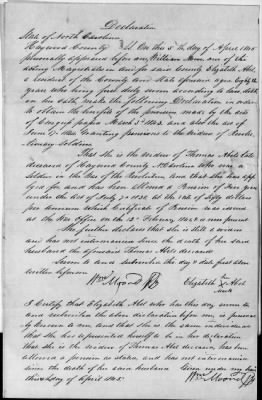 Declaration
State of North Carolina
Haywood County SS On this 5th day of April 1845
personally appeared before me, William Moon, one of the
acting Magistrates in and for said County Elizabeth Abel,
a resident of the County and State aforesaid aged Eighty
years who being first duly sworn according to law, doth
on her oath, make the following Declaration in order
to obtain the benefits of the provision made by the acts
of Congress passed March 3rd 1843, and also the act of
June 17th 1844 Granting pensions to the widows of Revolu-
tionary Soldiers
That she is the widow of Thomas Abel late
deceased of Haywood County N Carolina who was a
Soldier in the War of the Revolution and that she has app
lyed for and has been allowed a Pension of five years
under the act of July 7th 1838 at the rate of Fifty dollars
per annum which Certificate of Pension was issued
at the War Office on the 12th February 1842
She further declares that she is still a widow
and has not intermarried since the death of her said
husband the aforesaid Thomas Abel deceased
Sworn to and subscribed the day & date first above
written before me
Wm Moon JP
Elizabeth her X mark Abel
I Certify that Elizabeth Abel who has this day sworn to
and subscribed the above declaration before me, is person
ly known to me, and that she is the same individual
that she has represented herself to be in her declaration
that she is the widow of Thomas Abel deceased, has been
allowed a pension as stated, and has not intermarried
since the death of her said husband Given under my hand
this day of April 1845
Wm Moon JP